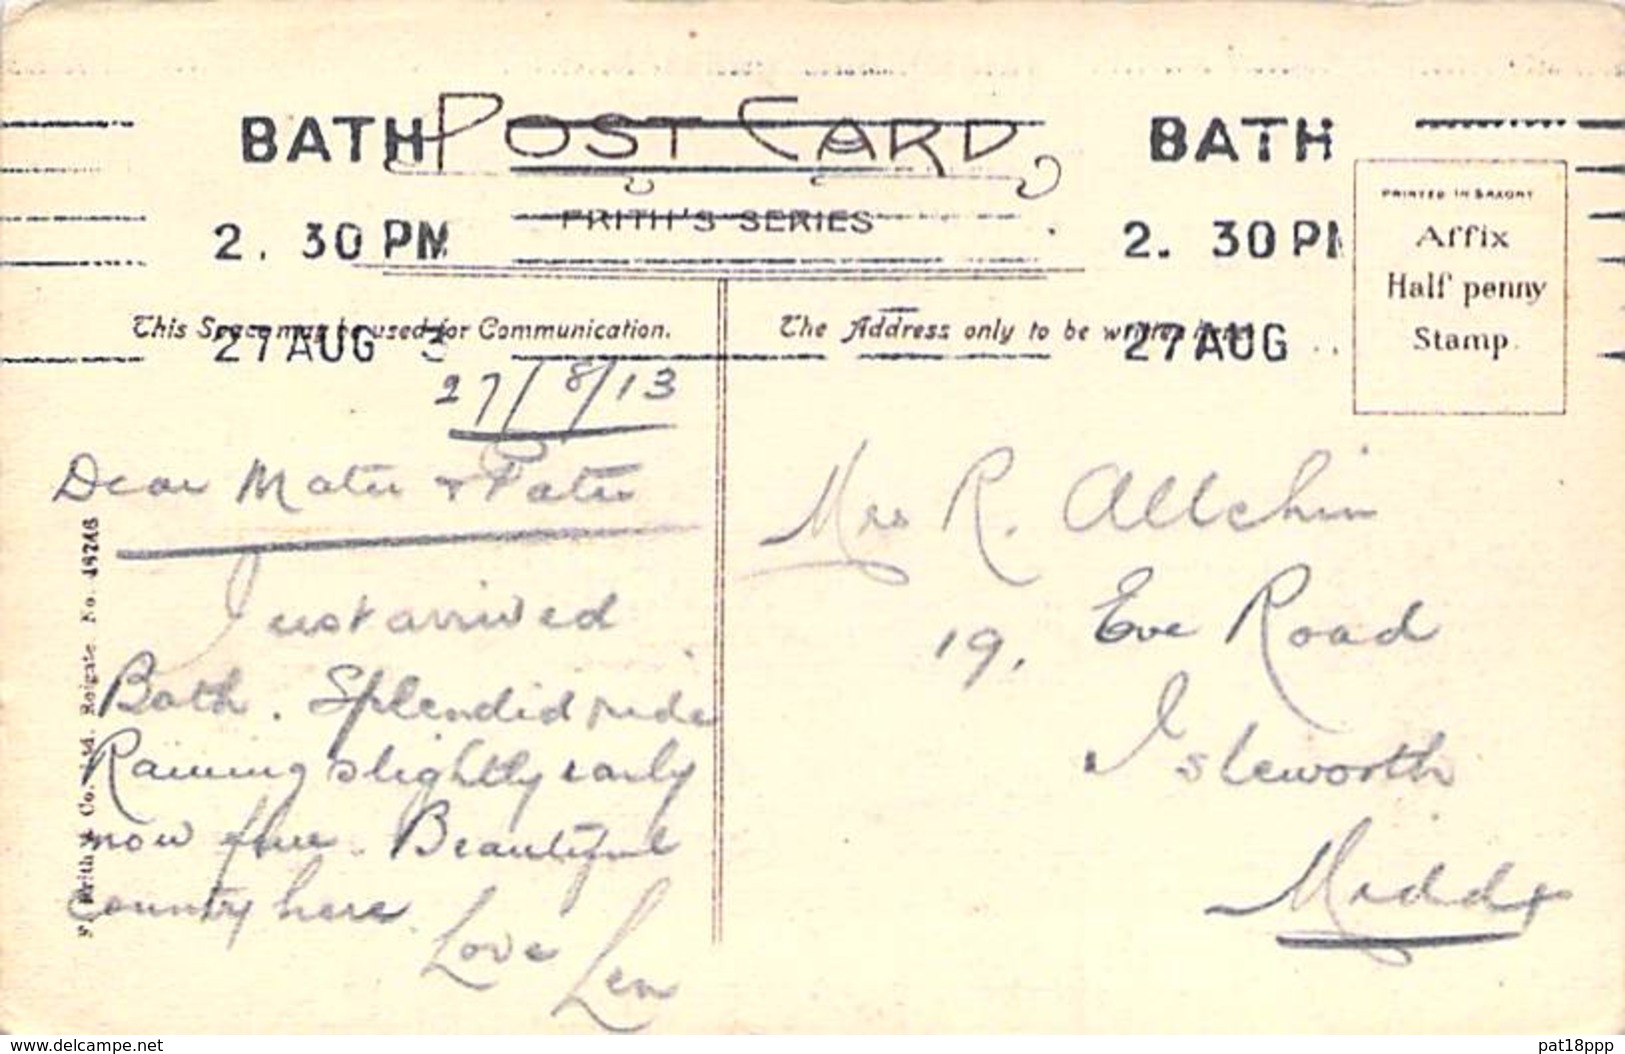 BATH
POST CARD
BATH
PRINTED IN SAXONY
2. 30 PM
FRITH'S SERIES
2. 30 PM
Affix
Half penny
Stamp
This Space may be used for Communication.
The Address only to be written here
27 AUG 3
27 AUG
27/8/13
Dear Mater & Pater
Just arrived
Bath. Splendid ride
Raining slightly early
now fine. Beautiful
County here.
Love Len
F. Frith & Co. Ltd. Reigate. No. 46246
Mrs R. Allchin
19, Eve Road
Isleworth
Middx
www.delcampe.net
pat18ppp